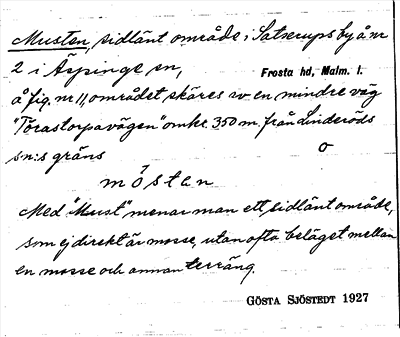 Musten, sidlänt område i Satserups by å nr
2 i Äspinge sn,
Frosta hd, Malm. l.
å fig. nr 11, området skäres av en mindre väg
"Torastorpavägen" omkr. 350 m. från Linderöds
sn:s gräns
o
mösten
Med "Must" menar man ett sidlänt område,
som ej direkt är mosse, utan ofta beläget mellan
en mosse och annan terräng.
GÖSTA SJÖSTEDT 1927